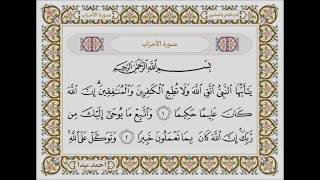 سورة الأحزاب
سورة الأحزاب
بِسْمِ اللَّهِ الرَّحْمَٰنِ الرَّحِيمِ
يَٰٓأَيُّهَا ٱلنَّبِىُّ ٱتَّقِ ٱللَّهَ وَلَا تُطِعِ ٱلْكَٰفِرِينَ وَٱلْمُنَٰفِقِينَ إِنَّ ٱللَّهَ
كَانَ عَلِيمًا حَكِيمًا ١ وَٱتَّبِعْ مَا يُوحَىٰٓ إِلَيْكَ مِن
رَّبِّكَ إِنَّ ٱللَّهَ كَانَ بِمَا تَعْمَلُونَ خَبِيرًا ٢ وَتَوَكَّلْ عَلَى ٱللَّهِ